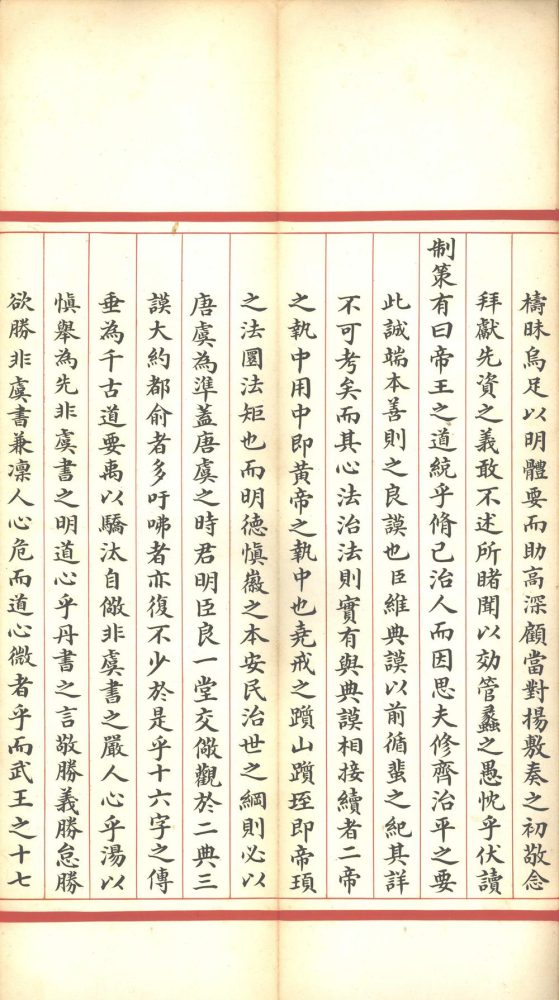 檮昧烏足以明體要而助高深顧當對揚敷奏之初敬念
拜獻先資之義敢不述所睹聞以効管蠡之愚忱乎伏讀
制策有曰帝王之道統乎脩己治人而因思夫修齊治平之要
此誠端本善則之良謨也臣維典謨以前循蜚之紀其詳
不可考矣而其心法治法則實有與典謨相接續者二帝
之執中用中即黃帝之執中也堯戒之躓山躓垤即帝頊
之法圜法矩也而明德慎徽之本安民治世之綱則必以
唐虞為準蓋唐虞之時君明臣良一堂交儆觀於二典三
謨大約都俞者多吁咈者亦復不少於是乎十六字之傳
垂為千古道要禹以驕汰自儆非虞書之嚴人心乎湯以
慎舉為先非虞書之明道心乎丹書之言敬勝義勝怠勝
欲勝非虞書兼凜人心危而道心微者乎而武王之十七